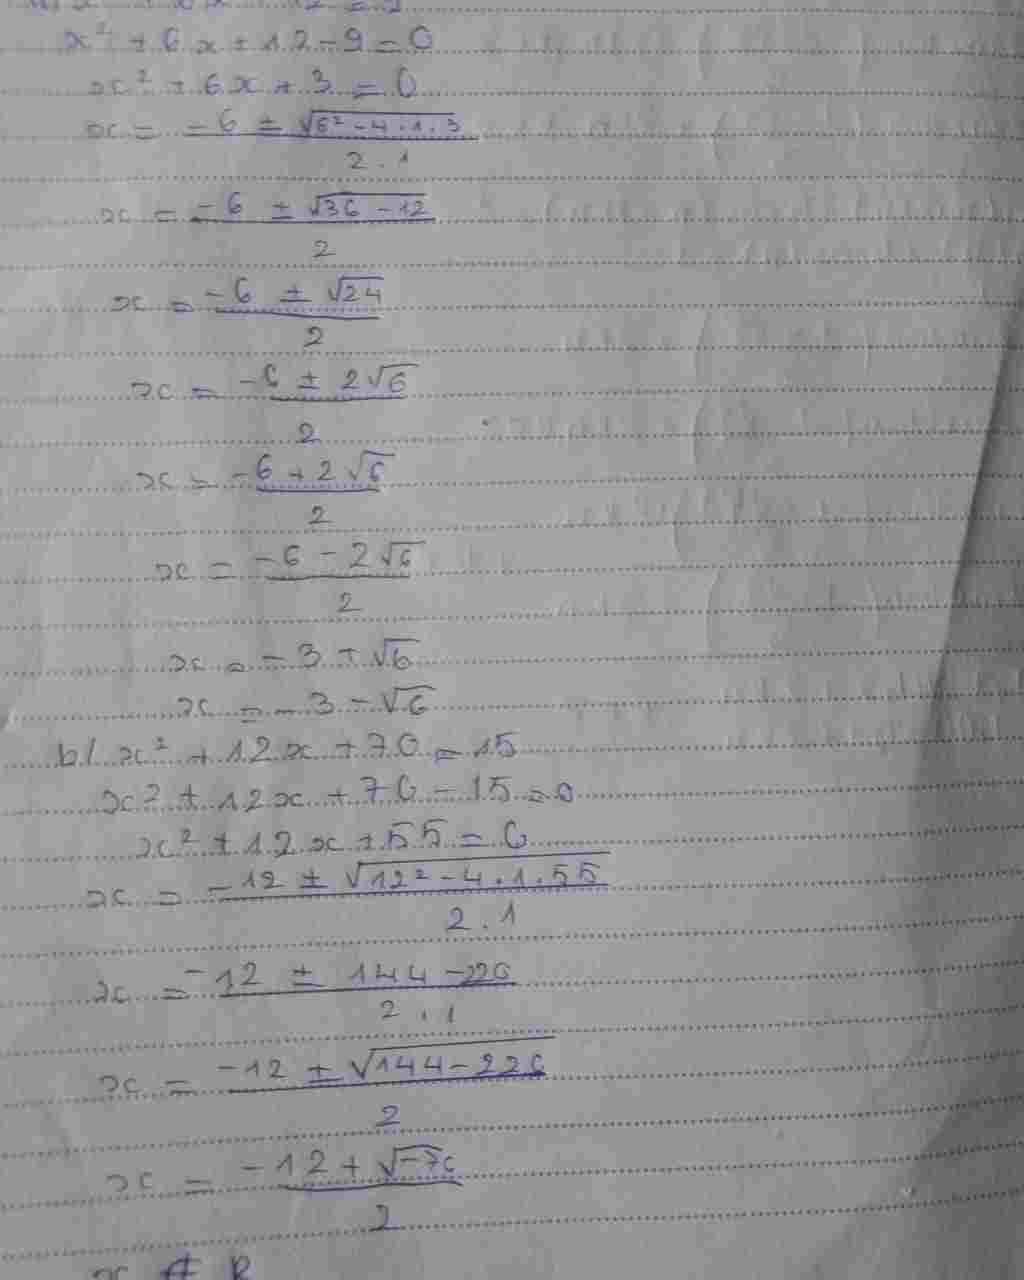 x² + 6x + 12 - 9 = 0
x² + 6x + 3 = 0
x = -6 ± √6² - 4 . 1 . 3
2 . 1
x = -6 ± √36 - 12
2
x = -6 ± √24
2
x = -6 ± 2√6
2
x = -6 + 2√6
2
x = -6 - 2√6
2
x = -3 + √6
x = -3 - √6
b/ x² + 12x + 70 = 15
x² + 12x + 70 - 15 = 0
x² + 12x + 55 = 0
x = -12 ± √12² - 4 . 1 . 55
2 . 1
x = -12 ± 144 - 220
2 . 1
x = -12 ± √144 - 220
2
x = -12 + √-76
2
x ∉ R